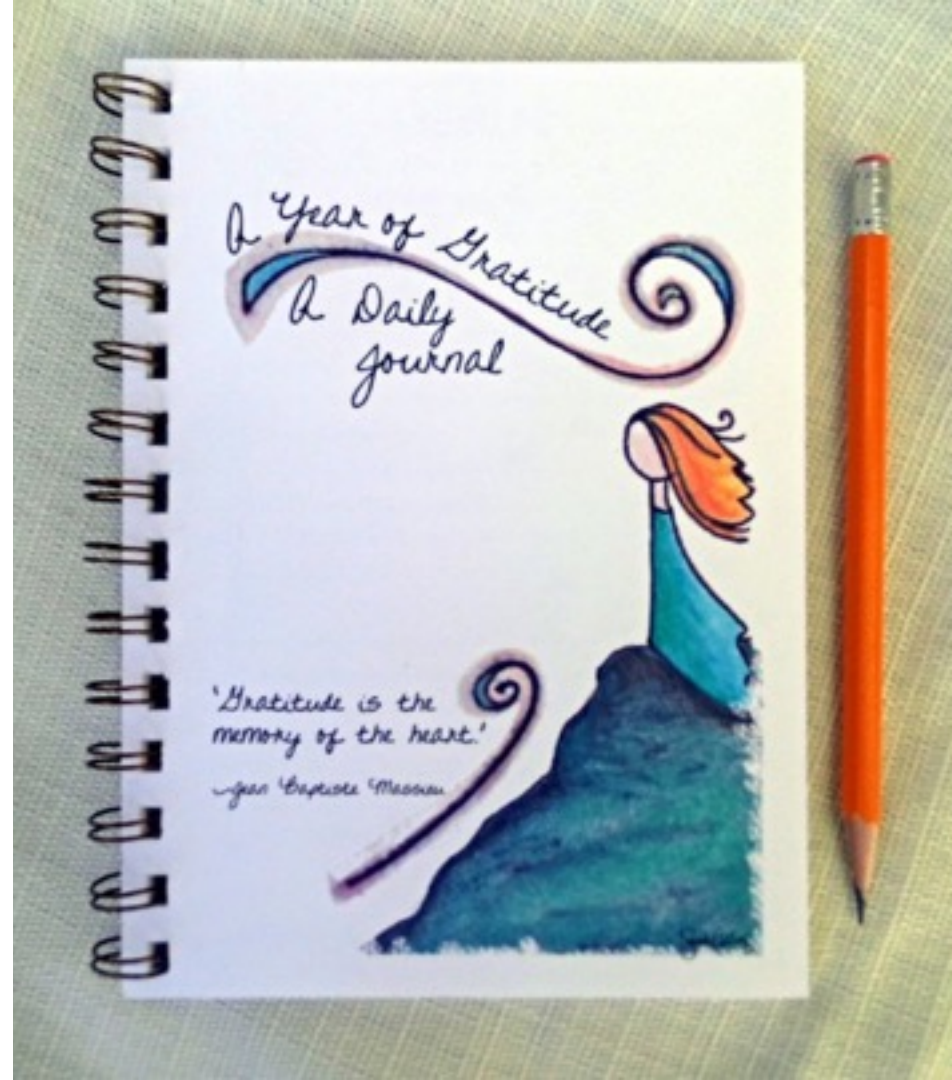 A Year of Gratitude
A Daily
Journal
'Gratitude is the
memory of the heart.'
~Jean Baptiste Massieu